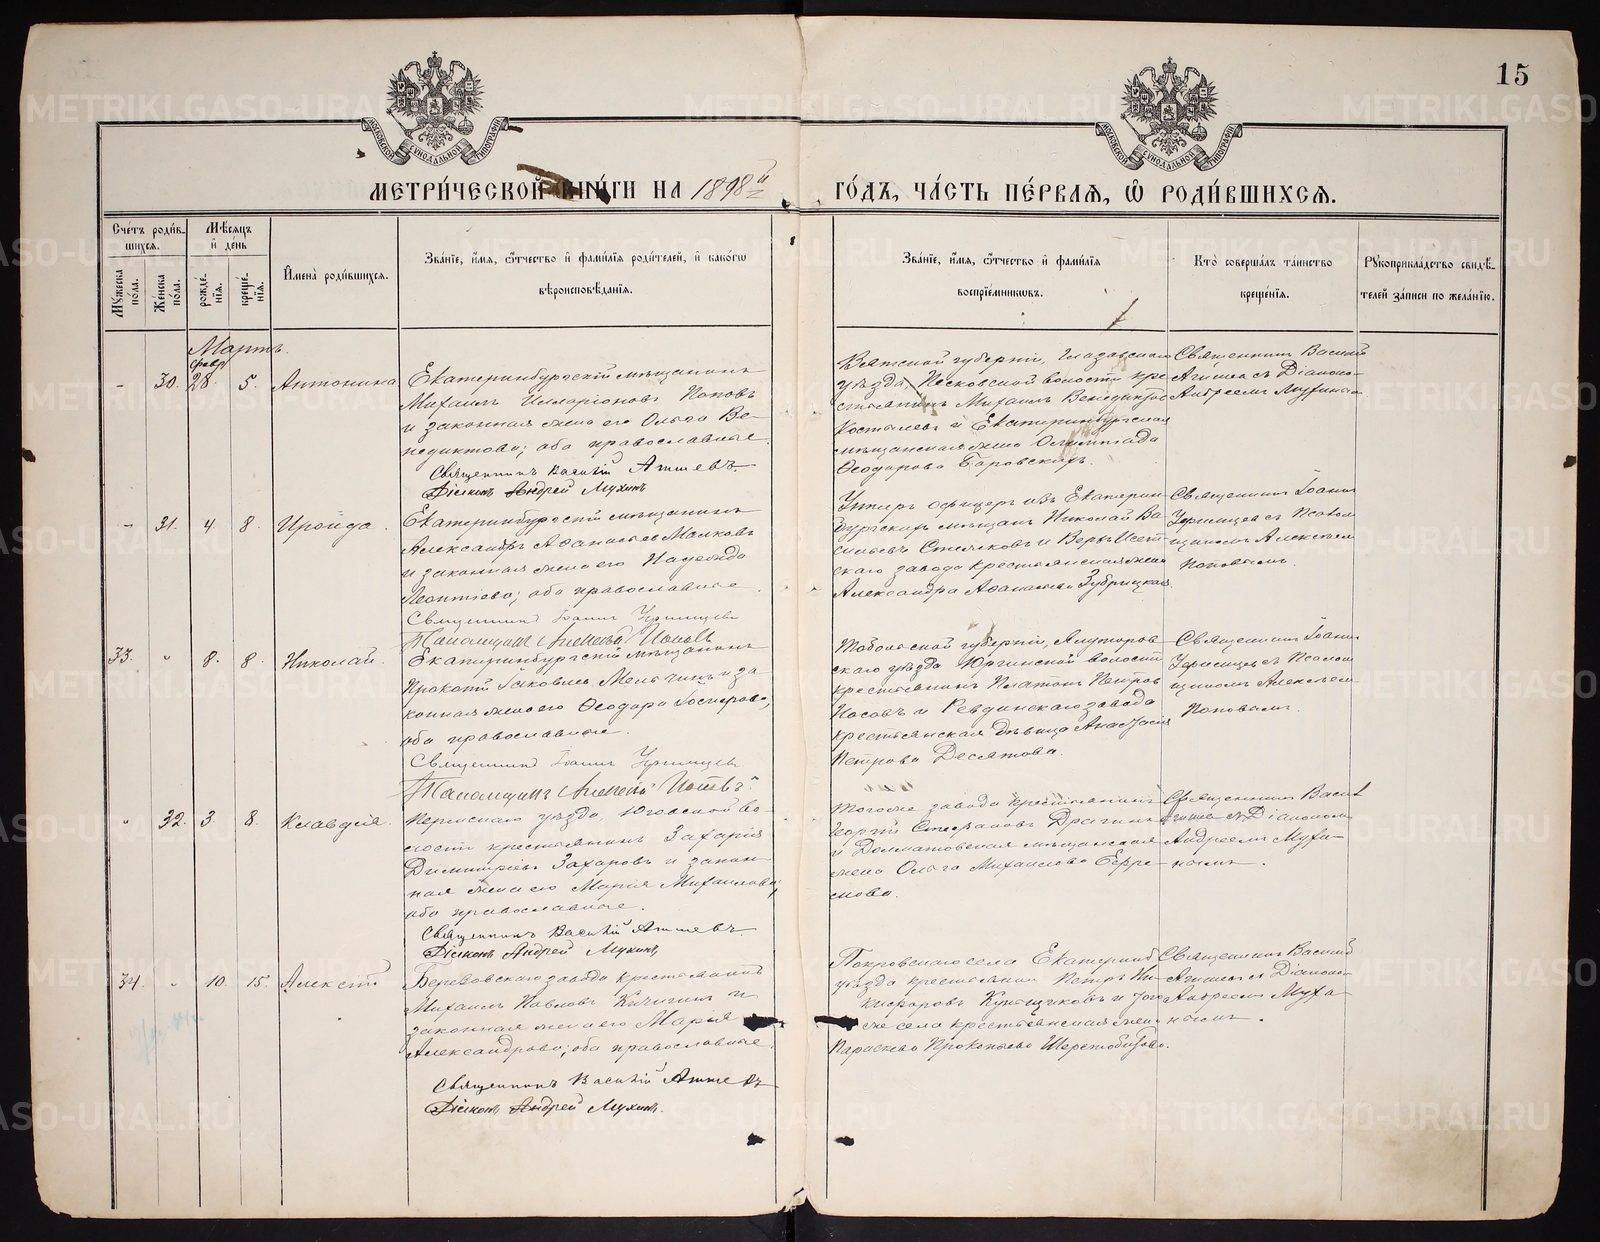 15
МОСКОВСКОЙ СѴНОДАЛЬНОЙ ТИПОГРАФІИ
МОСКОВСКОЙ СѴНОДАЛЬНОЙ ТИПОГРАФІИ
МЕТРИ́ЧЕСКОЙ КНИ́ГИ НА 1898й
ГО́ДЪ, ЧА́СТЬ ПЕ́РВАѦ, Ѡ҆ РОДИ́ВШИХСѦ.
Сче́тъ роди́в-
шихсѧ.
Мꙋ́жеска по́ла.
Же́нска по́ла.
Мѣ́сѧцъ и҆ де́нь
рожде́-
нїѧ.
креще́-
нїѧ.
И҆мена̀ роди́вшихсѧ.
Зва́нїе, и҆́мѧ, ѻ҆́тчество и҆ фами́лїѧ роди́телей, и҆ како́гѡ
вѣроисповѣ́данїѧ.
Зва́нїе, и҆́мѧ, ѻ҆́тчество и҆ фами́лїѧ
воспрїе́мникѡвъ.
Кто̀ соверша́лъ та́инство
креще́нїѧ.
Рꙋкоприкла́дство свидѣ́-
телей за́писи по жела́нїю.
Мартъ.
февр
- 30. 28. 5. Антонина
Екатеринбургскій мѣщанинъ
Михаилъ Илларіоновъ Поповъ
и законная жена его Ольга Ве-
недиктова; оба православные.
Священникъ Василій Агишевъ.
Діаконъ Андрей Мухинъ
Вятской губерніи, Глазовскаго
уѣзда, Песковской волости кре-
стьянинъ Михаилъ Венедиктовъ
Костылевъ и Екатеринбургская
мѣщанская жена Олимпіада
Ѳеодорова Боровскихъ.
Священникъ Василій
Агишевъ съ Діаконо-
Андреемъ Мухинымъ
- 31. 4. 8. Ираида.
Екатеринбургскій мѣщанинъ
Александръ Аѳанасьевъ Малковъ
и законная жена его Надежда
Леонтіева; оба православные.
Священникъ Іоаннъ
Псаломщикъ Алексѣй Поповъ
Унтеръ офицеръ изъ Екатерин-
бургскихъ мѣщанъ Николай Ва-
сильевъ Стеляковъ и Верхъ Исет-
скаго завода крестьянская жена
Александра Аѳанасьева Зубрицкая.
Священникъ Іоаннъ
съ Псалом-
щикомъ Алексѣемъ
Поповымъ.
33. " 8. 8. Николай.
Екатеринбургскій мѣщанинъ
Прокопій Іаковлевъ Мельчинъ и за-
конная жена его Ѳеодора Госнарова;
оба православные.
Священникъ Іоаннъ
Псаломщикъ Алексѣй Поповъ.
Тобольской губерніи, Ялуторов-
скаго уѣзда Юргинской волости
крестьянинъ Платонъ Петровъ
Носовъ и Ревдинскаго завода
крестьянская дѣвица Анастасія
Петрова Десятова.
Священникъ Іоаннъ
съ Псалом-
щикомъ Алексѣемъ
Поповымъ.
" 32. 3. 8. Клавдія.
Пермскаго уѣзда, Юговской во-
лости крестьянинъ Захарія
Димитріевъ Захаровъ и закон-
ная жена его Марія Михаилова;
оба православные.
Священникъ Василій Агишевъ.
Діаконъ Андрей Мухинъ,
Тогоже завода крестьянинъ
Георгій Стефановъ Драгинъ
и Долматовская мѣщанская
жена Ольга Михаилова Ефре-
мова.
Священникъ Васил
Агишевъ съ Діакономъ
Андреемъ Мухи-
нымъ.
34. " 10. 15. Алексѣй
Березовскаго завода крестьянинъ
Михаилъ Павловъ Кичигинъ и
законная жена его Марія
Александрова; оба православные.
Священникъ Василій Агишевъ
Діаконъ Андрей Мухинъ.
Покровскаго села Екатеринб
уѣзда крестьянинъ Петръ Ни-
кифоровъ Кунщиковъ и того
же села крестьянская жена
Параскева Прокопьева Шерстобитова.
Священникъ Василій
Агишевъ съ Діаконо-
Андреемъ Мухи-
нымъ.